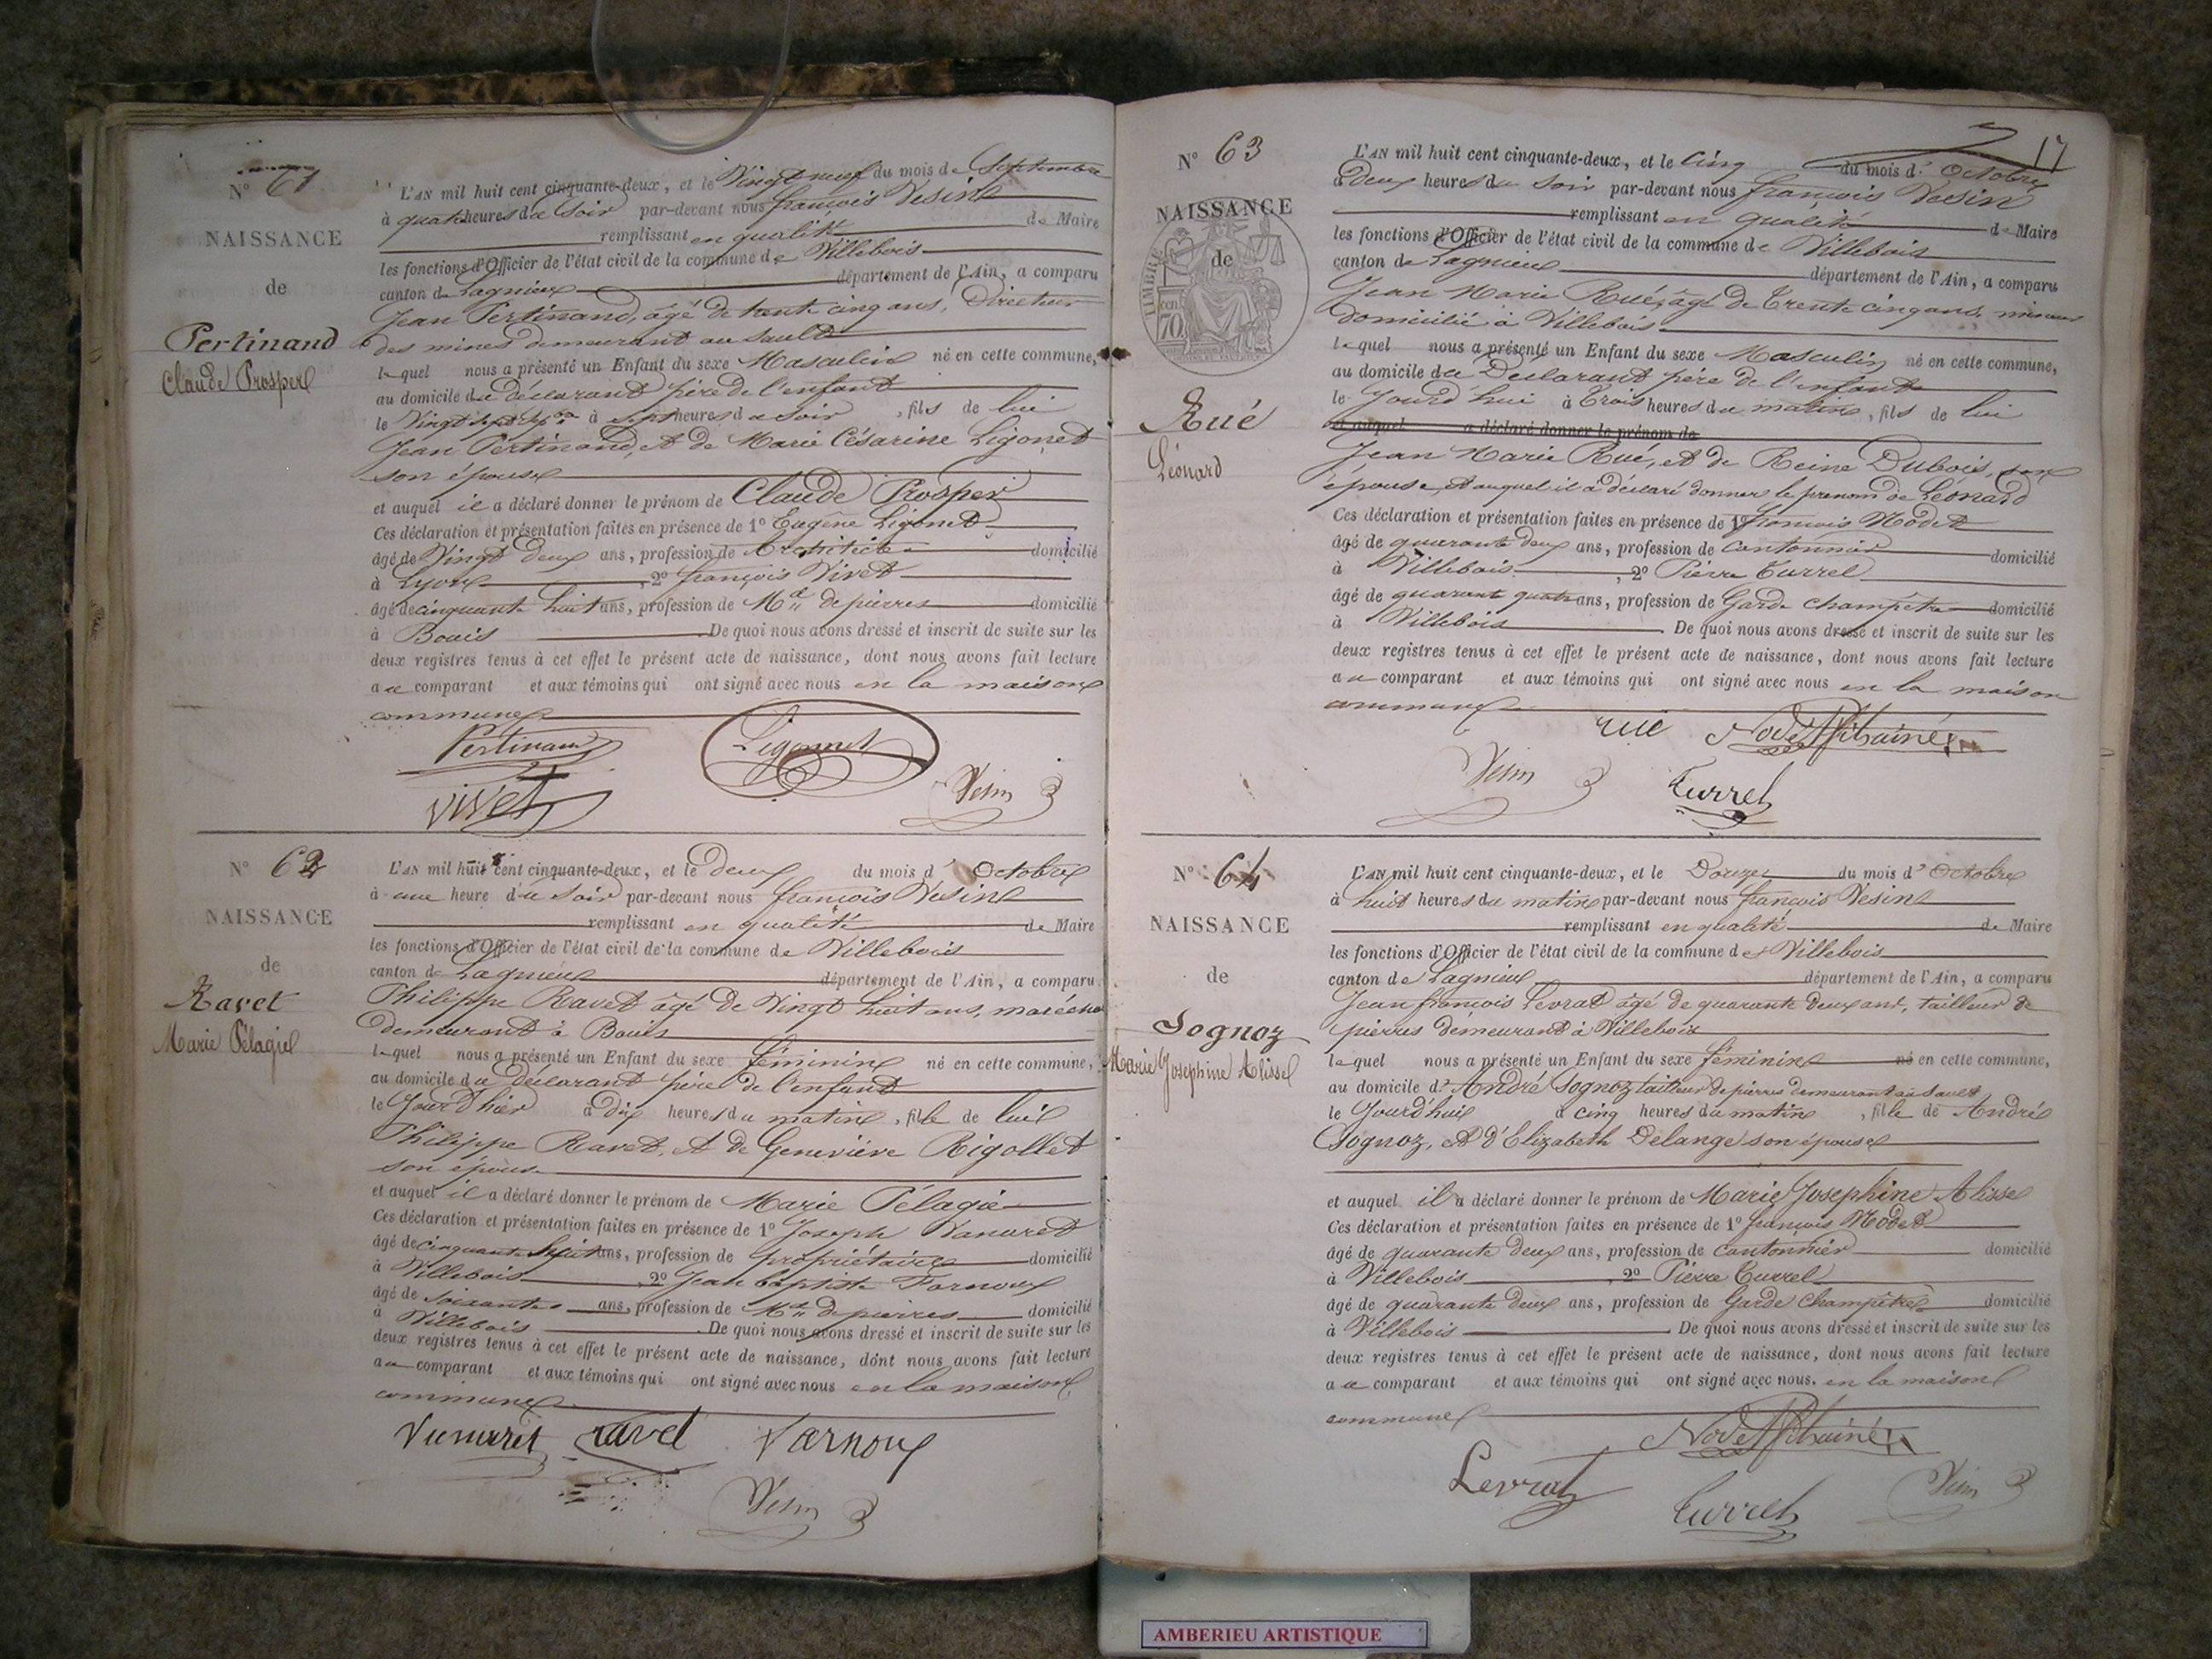 N° 61
NAISSANCE
de
Pertinand
Claude Prosper
L'AN mil huit cent cinquante-deux, et le Vingt neuf du mois de Septembre
à quatre heures du Soir par-devant nous françois Vesin
remplissant en qualité de Maire
les fonctions d'Officier de l'état civil de la commune de Villebois
canton de Lagnieux département de l'Ain, a comparu
Jean Pertinand, âgé de trente cinq ans, Directeur
des mines demeurant au Sault
lequel nous a présenté un Enfant du sexe Masculin né en cette commune,
au domicile du déclarant père de l'enfant
le Vingt sept à sept heures du Soir, fils de lui
Jean Pertinand, et de Marie Césarine Ligonet
son épouse
et auquel il a déclaré donner le prénom de Claude Prosper
Ces déclaration et présentation faites en présence de 1° Eugène Ligonet
âgé de Vingt deux ans, profession de Architecte domicilié
à Lyon, 2° françois Vivet
âgé de cinquante huit ans, profession de Md de pierres domicilié
à Bouis De quoi nous avons dressé et inscrit de suite sur les
deux registres tenus à cet effet le présent acte de naissance, dont nous avons fait lecture
au comparant et aux témoins qui ont signé avec nous en la maison
commune
Pertinand Ligonnet
Vivet Vesin
N° 62
NAISSANCE
de
Ravet
Marie Pélagie
L'AN mil huit cent cinquante-deux, et le deux du mois d'Octobre
à une heure du Soir par-devant nous françois Vesin
remplissant en qualité de Maire
les fonctions d'Officier de l'état civil de la commune de Villebois
canton de Lagnieux département de l'Ain, a comparu
Philippe Ravet âgé de Vingt huit ans, maréchal
demeurant à Bouis
lequel nous a présenté un Enfant du sexe féminin né en cette commune,
au domicile du déclarant père de l'enfant
le Jour d'hier à dix heures du matin, fille de lui
Philippe Ravet, et de Geneviève Rigollet
son épouse
et auquel il a déclaré donner le prénom de Marie Pélagie
Ces déclaration et présentation faites en présence de 1° Joseph
âgé de cinquante ans, profession de propriétaire domicilié
à Villebois, 2° Jean baptiste Varnoux
âgé de soixante ans, profession de Md de pierres domicilié
à Villebois De quoi nous avons dressé et inscrit de suite sur les
deux registres tenus à cet effet le présent acte de naissance, dont nous avons fait lecture
au comparant et aux témoins qui ont signé avec nous en la maison
commune
ravet Varnoux
Vesin
17
N° 63
NAISSANCE
de
TIMBRE
70 cen
Rué
Léonard
L'AN mil huit cent cinquante-deux, et le Cinq du mois d'Octobre
à deux heures du soir par-devant nous françois Vesin
remplissant en qualité de Maire
les fonctions d'Officier de l'état civil de la commune de Villebois
canton de Lagnieux département de l'Ain, a comparu
Jean Marie Rué, âgé de Trente cinq ans, mineur
domicilié à Villebois
lequel nous a présenté un Enfant du sexe Masculin né en cette commune,
au domicile du Déclarant père de l'enfant
le Jourd'hui à Trois heures du matin, fils de lui
et auquel a déclaré donner le prénom de
Jean Marie Rué, et de Reine Dubois, son
épouse, et auquel il a déclaré donner le prenom de Léonard
Ces déclaration et présentation faites en présence de 1° françois Nodet
âgé de quarante deux ans, profession de cantonnier domicilié
à Villebois, 2° Pierre Turrel
âgé de quarante quatre ans, profession de Garde champêtre domicilié
à Villebois De quoi nous avons dressé et inscrit de suite sur les
deux registres tenus à cet effet le présent acte de naissance, dont nous avons fait lecture
au comparant et aux témoins qui ont signé avec nous en la maison
commune
rué Nodet fils ainé
Vesin Turrel
N° 64
NAISSANCE
de
Sognoz
Marie Josephine Alisse
L'AN mil huit cent cinquante-deux, et le Douze du mois d'Octobre
à huit heures du matin par-devant nous françois Vesin
remplissant en qualité de Maire
les fonctions d'Officier de l'état civil de la commune de Villebois
canton de Lagnieux département de l'Ain, a comparu
Jean françois Levrat âgé de quarante deux ans, tailleur de
pierres demeurant à Villebois
lequel nous a présenté un Enfant du sexe féminin né en cette commune,
au domicile d'André Sognoz tailleur de pierres demeurant au Sault
le Jourd'hui à cinq heures du matin, fille de André
Sognoz, et d'Elizabeth Delange son épouse
et auquel il a déclaré donner le prénom de Marie Josephine Alisse
Ces déclaration et présentation faites en présence de 1° françois Nodet
âgé de quarante deux ans, profession de cantonnier domicilié
à Villebois, 2° Pierre Turrel
âgé de quarante deux ans, profession de Garde Champêtre domicilié
à Villebois De quoi nous avons dressé et inscrit de suite sur les
deux registres tenus à cet effet le présent acte de naissance, dont nous avons fait lecture
au comparant et aux témoins qui ont signé avec nous. en la maison
commune
Nodet fils ainé
Levrat Turrel Vesin
AMBERIEU ARTISTIQUE